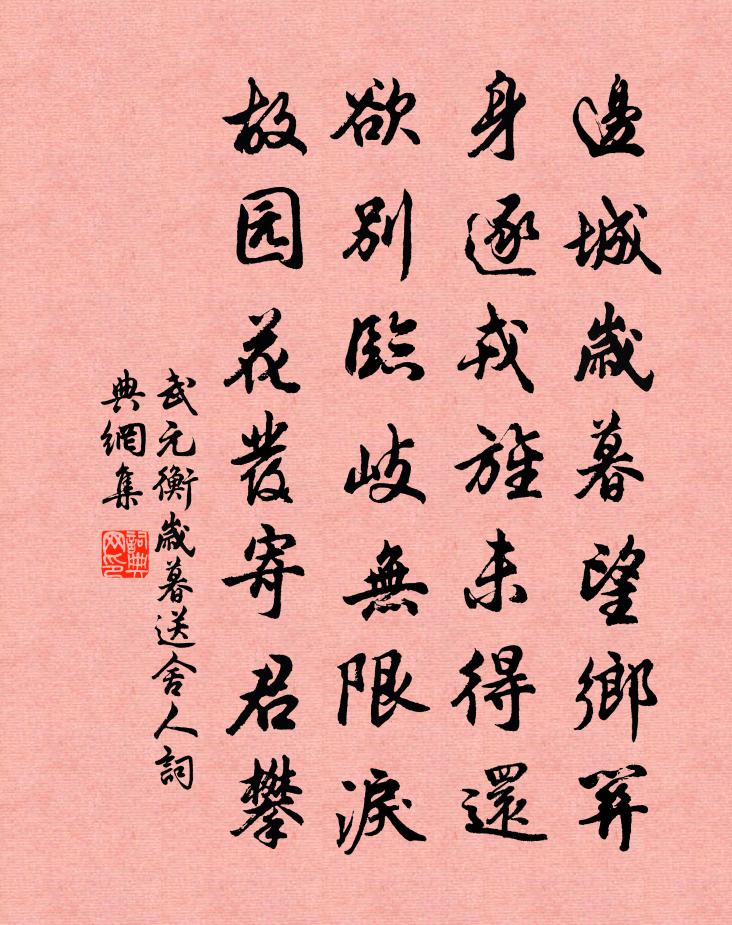 邊城歲暮望鄉関
身逐戎旌未得還
欲別臨歧無限淚
故园花發寄君攀
武元衡歲暮送舍人詞
典網集
詞典网印